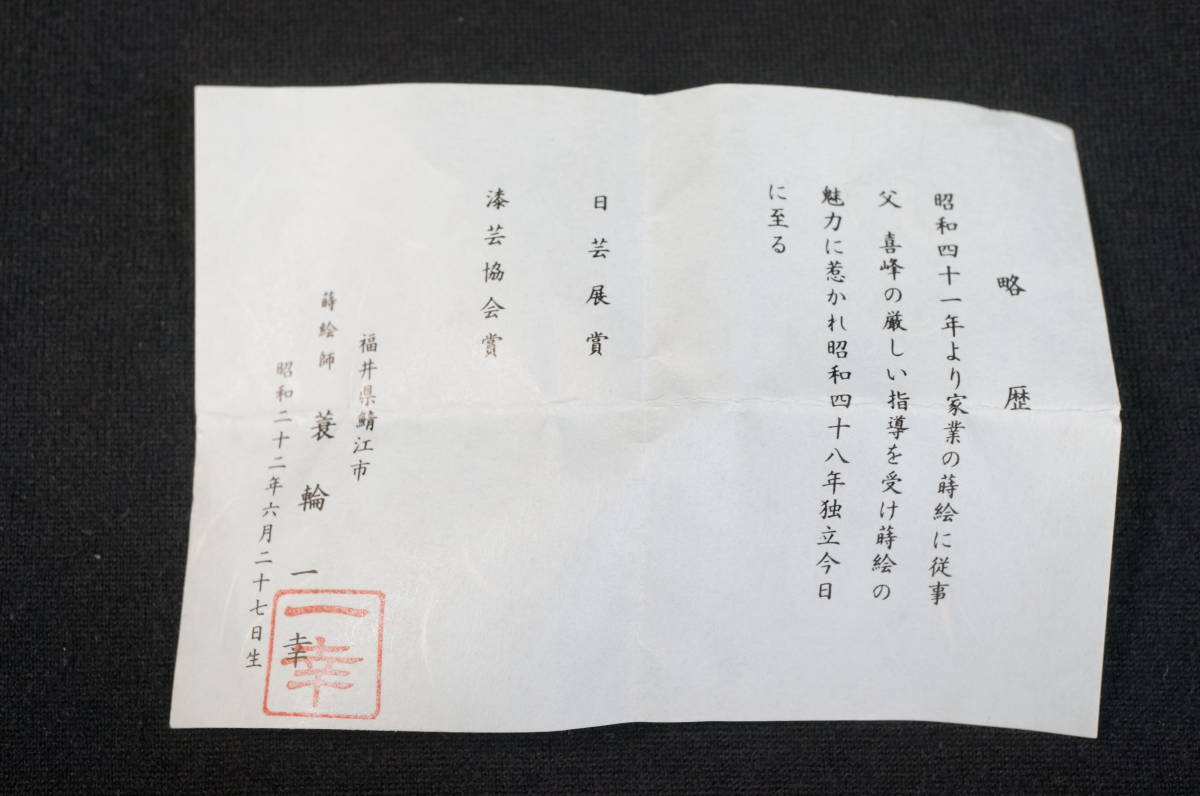 略歴
昭和四十一年より家業の蒔絵に従事
父 喜峰の厳しい指導を受け蒔絵の
魅力に惹かれ昭和四十八年独立今日
に至る
日芸展賞
漆芸協会賞
福井県鯖江市
蒔絵師 蓑輪一幸
昭和二十二年六月二十七日生
一幸